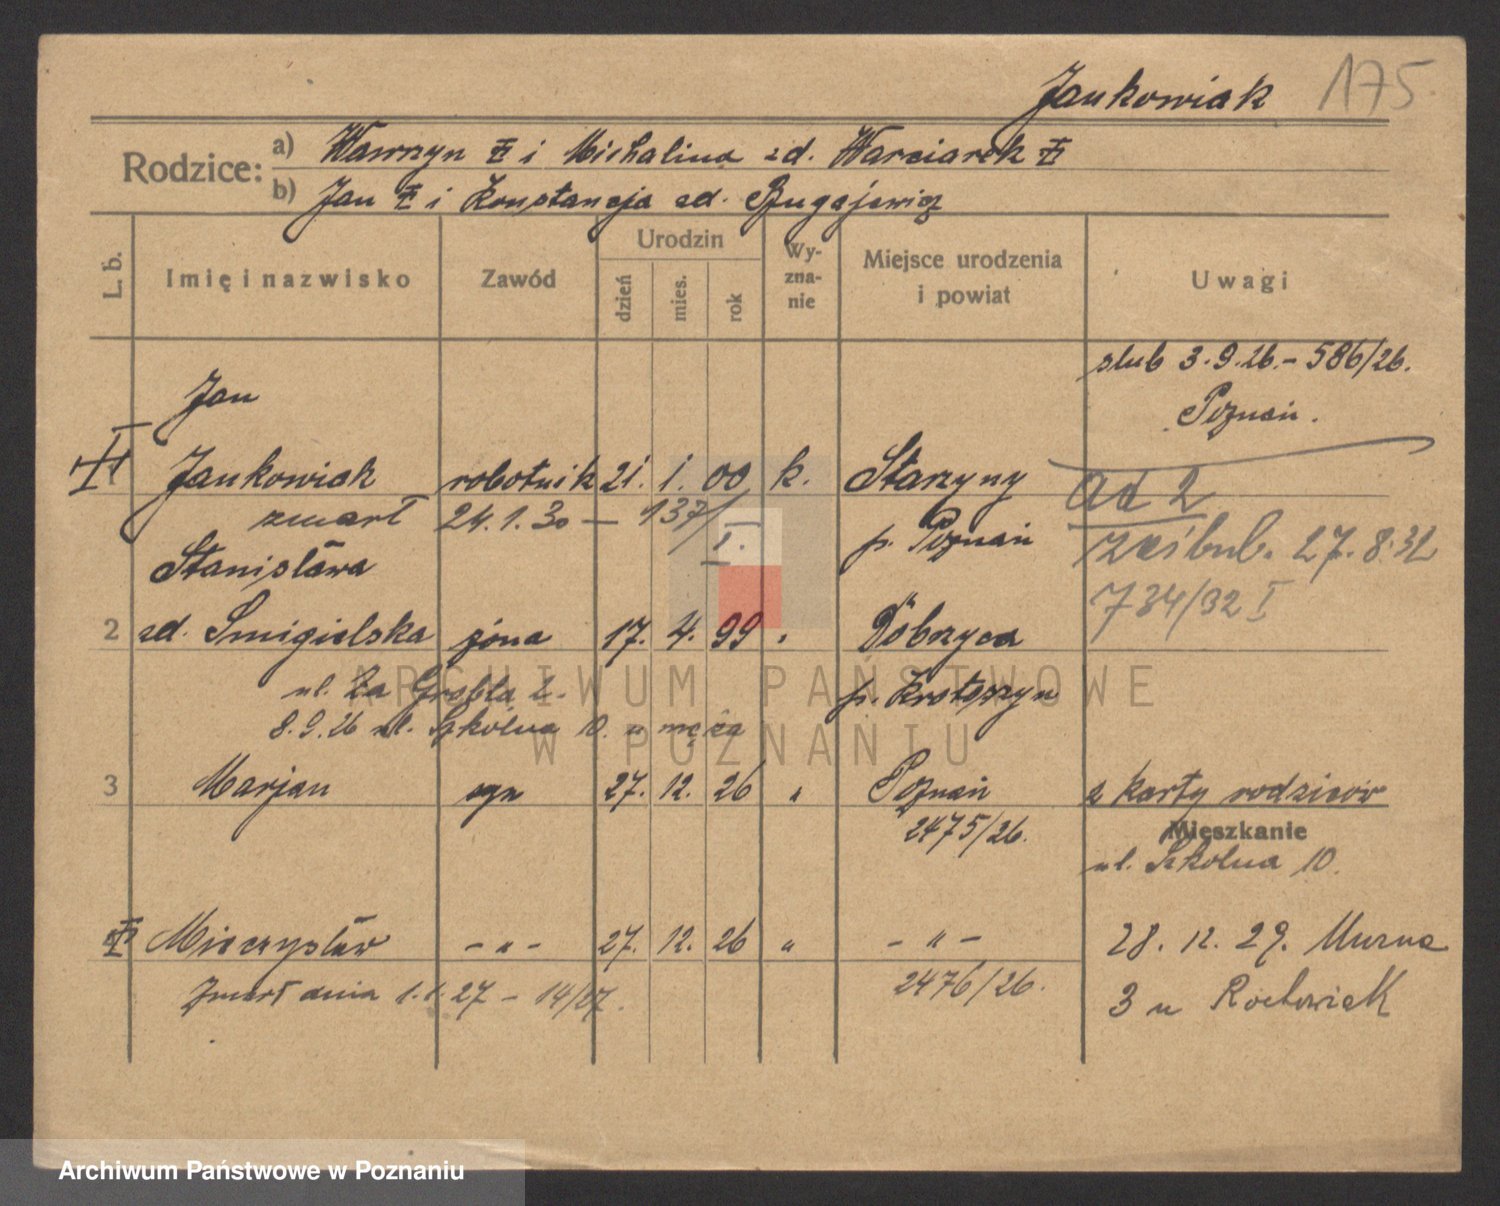 Jankowiak 175.
Rodzice: a) Wawrzyn i Michalina zd. Warciarek
b) Jan i Konstancja zd. Bugajewicz
L. b. Imię i nazwisko Zawód Urodzin dzień mies. rok Wyznanie Miejsce urodzenia i powiat Uwagi
ślub 3.9.26. – 586/26.
Poznań.
Jan
Jankowiak robotnik 21. 1. 00 k. Starzyny
zmarł 24.1.30 — 137/I. p. Poznań
ad 2
Stanisława
zaślub. 27.8.32
734/32 I
2 zd. Smigielska żona 17. 4. 99 " Dobrzyca
ul. Za Groblą 2. p. Krotoszyn
8.9.26 ul. Szkolna 10. u męża
3 Marjan syn 27. 12. 26 " Poznań z karty rodziców
2475/26.
Mieszkanie
ul. Szkolna 10.
Mieczysław – " – 27. 12. 26 " – " – 28. 12. 29. Murna
Zmarł dnia 1.1.27 – 14/27. 2476/26.
3 u
ARCHIWUM PAŃSTWOWE
W POZNANIU
Archiwum Państwowe w Poznaniu